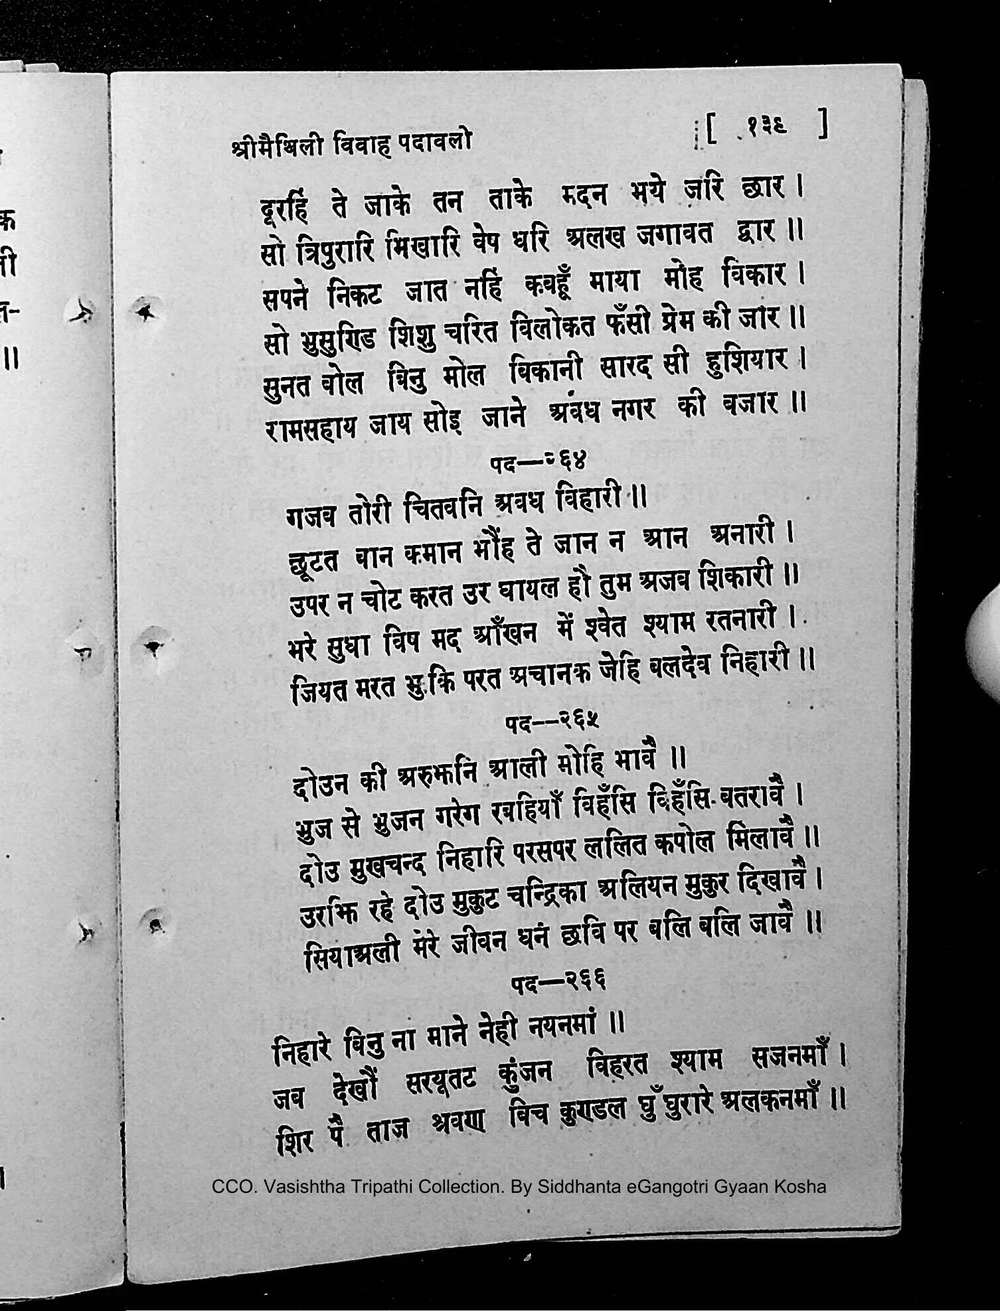 श्रीमैथिली विवाह पदावलो [ १३९ ]
दूरहिं ते जाके तन ताके मदन भये जरि छार ।
सो त्रिपुरारि भिखारि वेष धरि अलख जगावत द्वार ॥
सपने निकट जात नहिं कबहूँ माया मोह विकार ।
सो भुसुण्डि शिशु चरित विलोकत फँसी प्रेम की जार ॥
सुनत बोल बिनु मोल बिकानी सारद सी हुशियार ।
रामसहाय जाय सोइ जाने अवध नगर की बजार ॥
पद—२६४
गजब तोरी चितवनि अवध विहारी ॥
छूटत बान कमान भौंह ते जान न आन अनारी ।
उपर न चोट करत उर घायल हौ तुम अजब शिकारी ॥
भरे सुधा विष मद आँखन में श्वेत श्याम रतनारी ।
जियत मरत झुकि परत अचानक जेहि बलदेव निहारी ॥
पद—२६५
दोउन की अरुझनि आली मोहि भावै ॥
भुज से भुजन गरेग रबहियाँ विहँसि विहँसि बतरावै ।
दोउ मुखचन्द निहारि परसपर ललित कपोल मिलावै ॥
उरझि रहे दोउ मुकुट चन्द्रिका अलियन मुकुर दिखावै ।
सियाअली मेरे जीवन धन छवि पर बलि बलि जावै ॥
पद—२६६
निहारे बिनु ना माने नेही नयनमां ॥
जब देखौं सरयूतट कुंजन विहरत श्याम सजनमाँ ।
शिर पै ताज श्रवण बिच कुण्डल घुँघुरारे अलकनमाँ ॥
CCO. Vasishtha Tripathi Collection. By Siddhanta eGangotri Gyaan Kosha